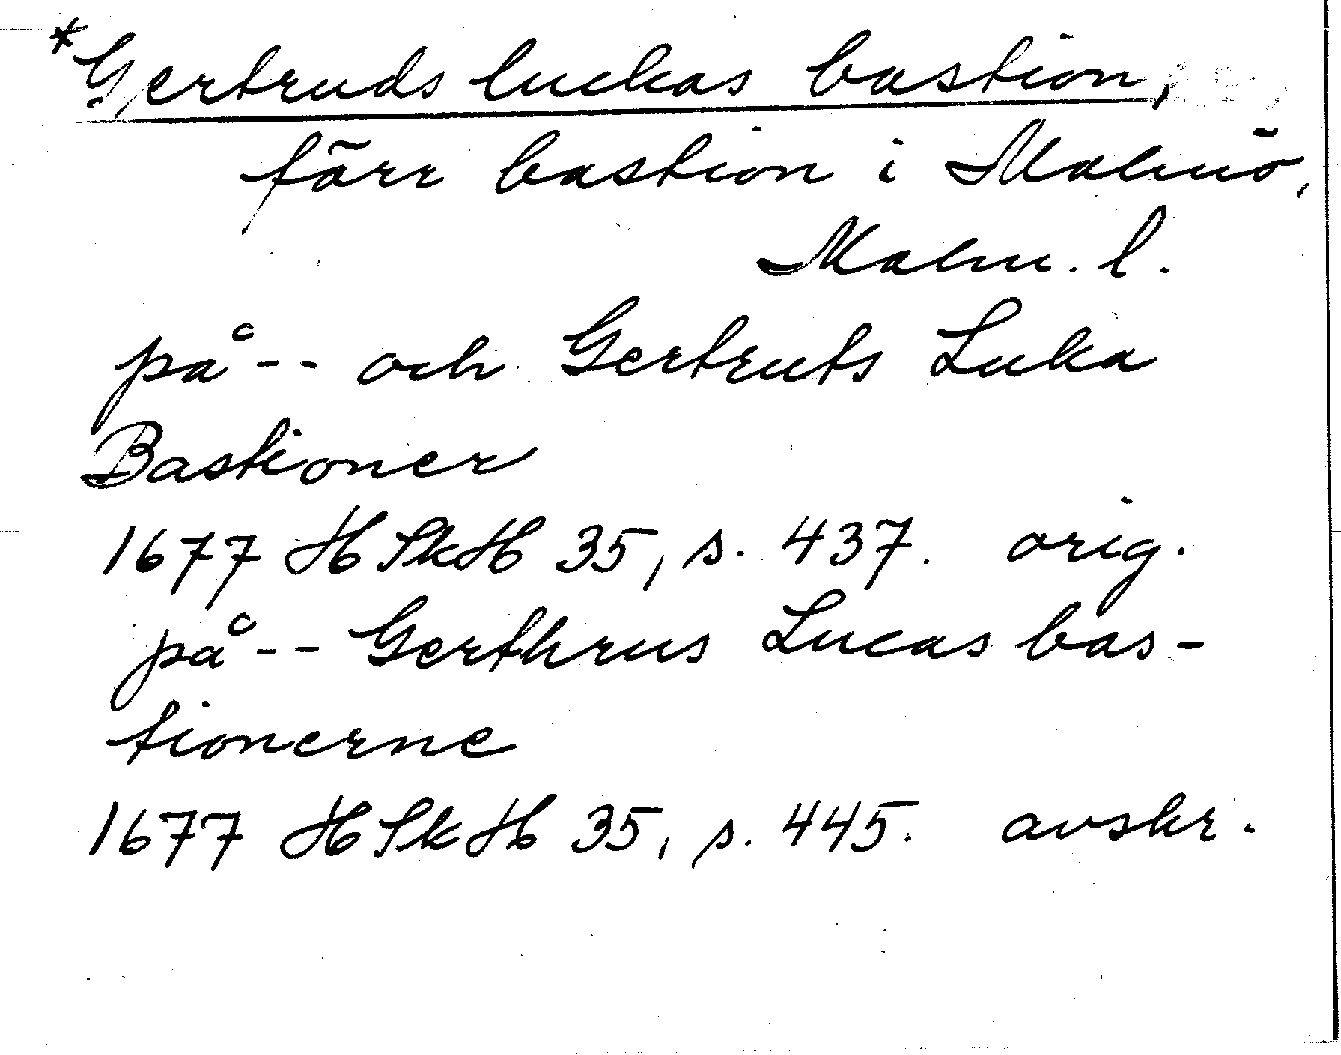 *Gertruds luckas bastion,
färr bastion i Malmö,
Malm. l.
på -- och Gertruts Luka
Bastioner
1677 HSkH 35, s. 437. orig.
på -- Gerthrus Lucas bas-
tionerne
1677 HSkH 35, s. 445. avskr.